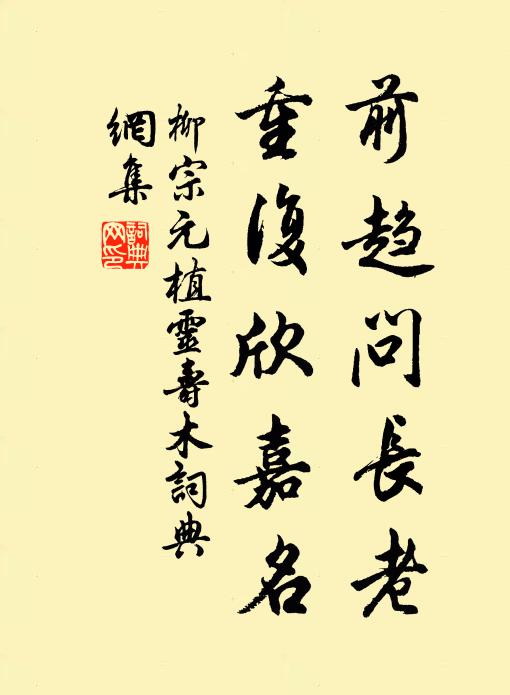 前趋問長老
重復欣嘉名
柳宗元植靈壽木詞典
網集
詞典
网印